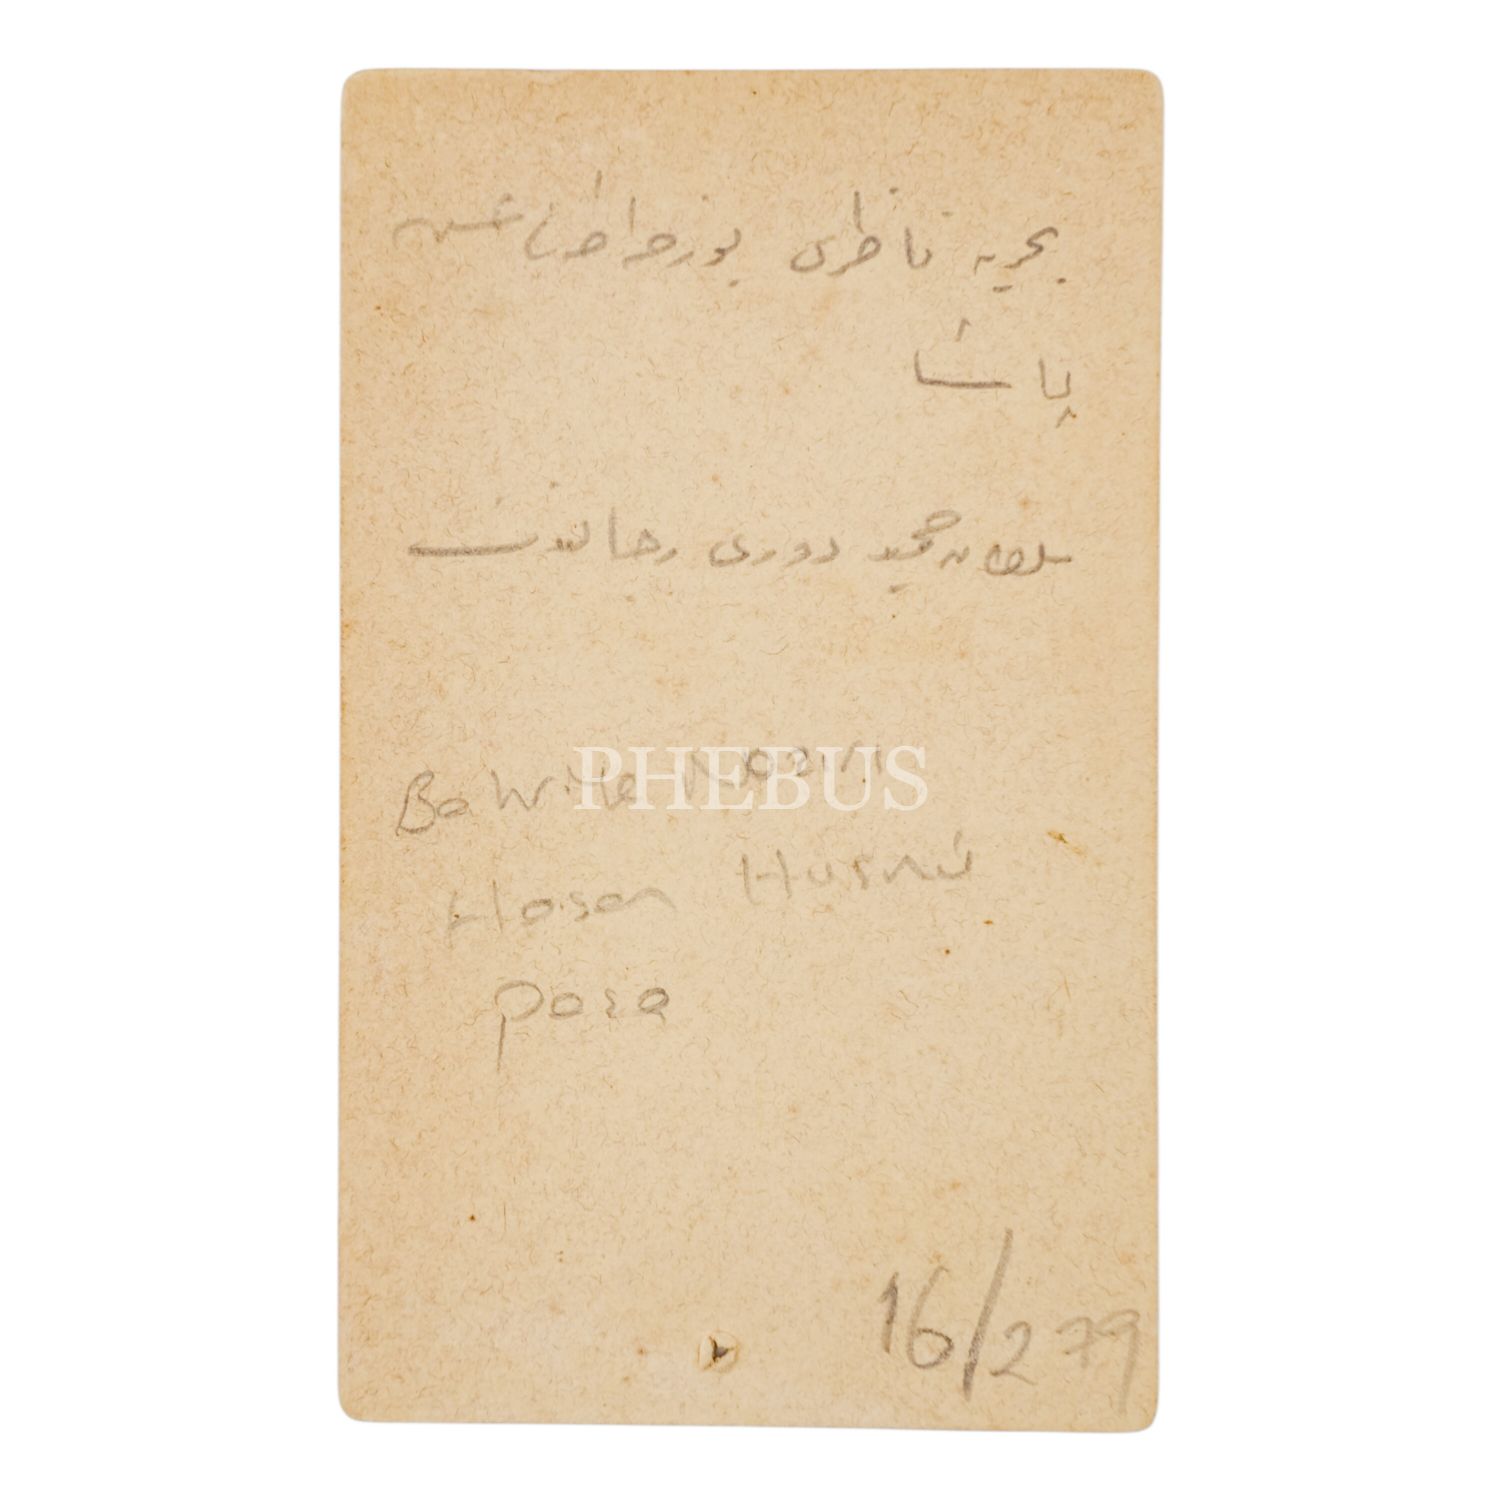 بحریه ناظری بوزجه اطه‌لی حسن
پاشا
سلطان حمید دوری رجالندن
Bahriye Naziri
Hasan Hüsnü
Pasa
16/279
PHEBUS